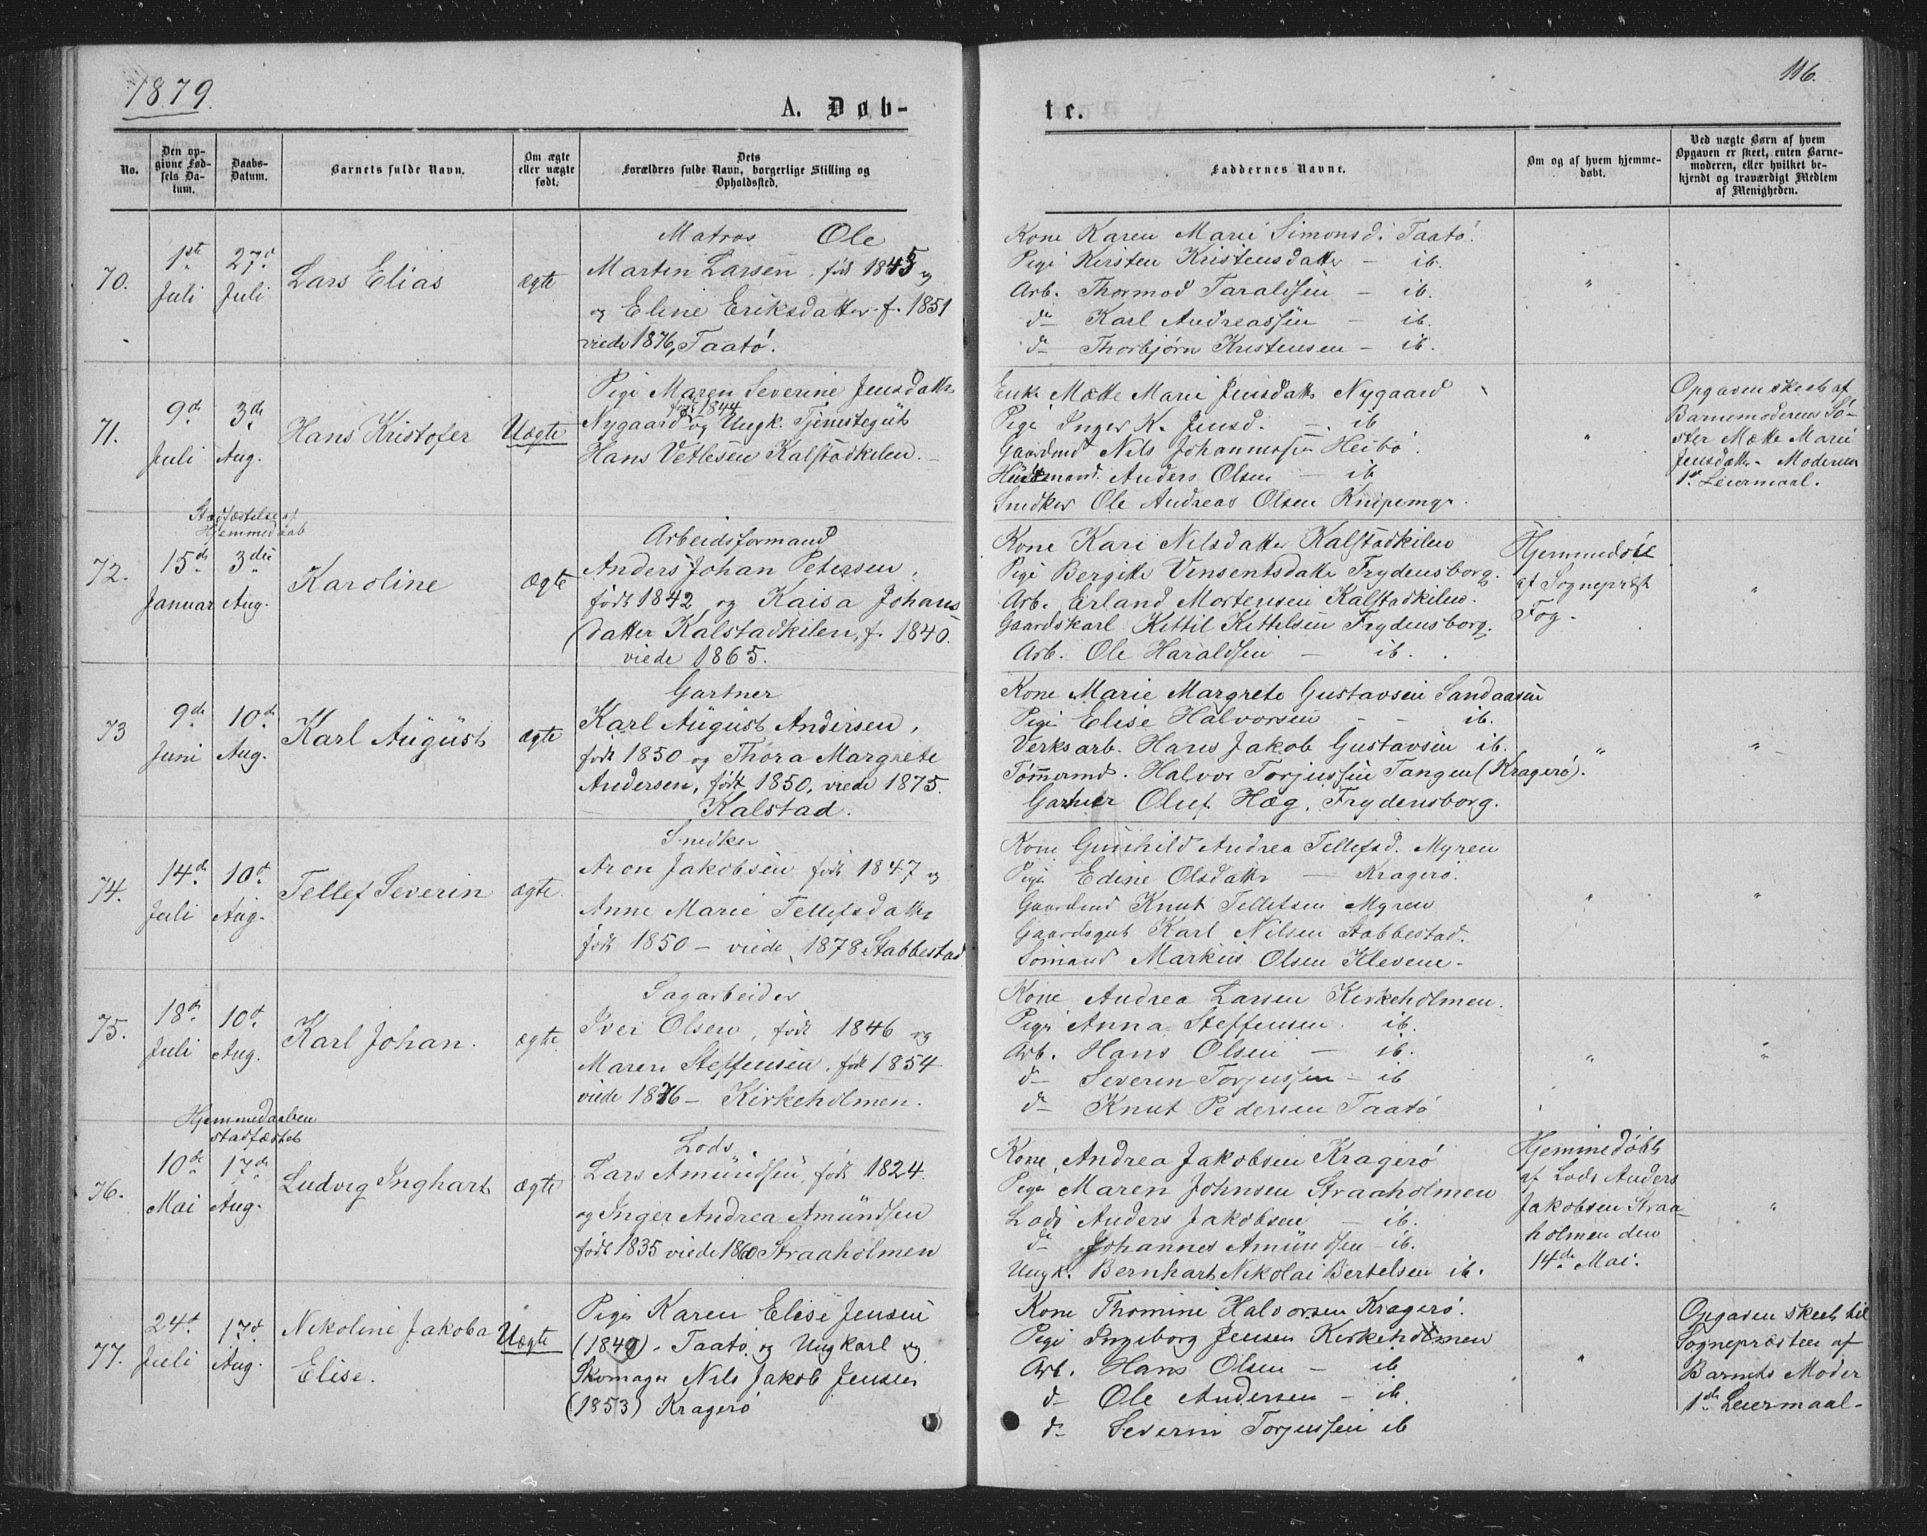 1879.
116.
A. Døb-
te.
No.
Den op-
givne Fød-
sels Da-
tum.
Daabs-
Datum.
Barnets fulde Navn.
Om ægte
eller uægte
født.
Dets
Forældres fulde Navn, borgerlige Stilling og
Opholdssted.
Faddernes Navne.
Om og af hvem hjemme-
døbt.
Ved uægte Børn af hvem
Opgaven er skeet, enten Barne-
moderen, eller hvilket be-
kjendt og troværdigt Medlem
af Menigheden.
70.
1ste
Juli
27d
Juli
Lars Elias
ægte
Matros Ole
Martin Larsen, født 1845 og
og Eline Eriksdatter f. 1851
viede 1876, Taatø.
Kone Karen Marie Simonsd. Taatø.
Pige Kirsten Kristensdatter — ib.
Arb. Thormod Taraldsen — ib.
d— Karl Andreassen — ib.
d— Thorbjørn Kristensen — ib.
"
71.
9de
Juli
3de
Aug.
Hans Kristofer
Uægte
Pige Maren Severine Jensdatter
født 1844
Nygaard og Ungk. Tjenestegut
Hans Vetlesen Kalstadkilen.
Enke Mette Marie Jensdatt. Nygaard
Pige Inger K. Jensd. — ib
Gaardmd Nils Johannessen Heibø.
Husmand. Anders Olsen — ib
Snedker Ole Andreas Olsen Knipemyr.
"
Opgaven skeet af
Barnemoderens Sø-
ster Mette Marie
Jensdatter. Moderens
1ste Leiermaal.
72.
Stadfæstelse af
Hjemmedaab
15de
Januar
3die
Aug.
Karoline
Ægte
Arbeidsformand
Anders Johan Petersen,
født 1842 og Kaisa Johans
datter Kalstadkilen, f. 1840.
viede 1865.
Kone Kari Nilsdatter Kalstadkilen
Pige Bergitte Vinsentsdatter Frydensborg.
Arb. Erland Mortensen Kalstadkilen.
Gaardskarl Kittil Kittilsen Frydensborg.
Arb. Ole Haraldsen — ib.
Hjemmedøbt
af Sognepræst
Fog.
"
73
9de
Juni
10de
Aug.
Karl August
ægte
Gartner
Karl August Andersen,
født 1850 og Thora Margrete
Andersen, født 1850, viede 1875.
Kalstad.
Kone Marie Margrete Gustavsen Sandaasen
Pige Elise Halvorsen — — ib.
Verksarb. Hans Jakob Gustavsen ib.
Tømmermd. Halvor Torjussen Tangen (Kragerø).
Gartner Oluf Hæg, Frydensborg.
"
"
74.
14de
Juli
10d
Aug.
Tellef Severin
ægte
Snedker
Aron Jakobsen født 1847 og
Anne Marie Tellefsdatter
født 1850 — viede 1878 Stabbestad
Kone Gunhild Andrea Tellefsd. Myren
Pige Edine Olsdatter — Kragerø.
Gaardmd Knut Tellefsen Myren
Gaardsgut Karl Nilsen Stabbestad.
Sømand Markus Olsen Klevene.
"
"
75.
18de
Juli
10d
Aug.
Karl Johan.
ægte
Sagarbeider
Iver Olsen, født 1846 og
Maren Steffensen, født 1854
viede 1876 — Kirkeholmen.
Kone Andrea Larsen Kirkeholmen.
Pige Anna Steffensen ib.
Arb. Hans Olsen — ib.
d— Severin Torjussen — ib
d— Knut Pedersen Taatø
"
"
76.
Hjemmedaaben
stadfæstet
10de
Mai
17de
Aug.
Ludvig Inghart
ægte
Lods
Lars Amundsen, født 1824.
og Inger Andrea Amundsen
født 1835 viede 1860 Straaholmen
Kone Andrea Jakobsen Kragerø
Pige Maren Johnsen Straaholmen
Lods Anders Jakobsen — ib.
d— Johannes Amundsen — ib.
Ungk. Bernhart Nikolai Bertelsen ib.
Hjemmedøbt
af Lods Anders
Jakobsen Straa-
holmen den
14de Mai.
"
77.
24d
Juli
17d
Aug.
Nikoline Jakoba
Elise.
Uægte
Pige Karen Elise Jensen
(1849). Taatø og Ungkarl og
Skomager Nils Jakob Jensen
(1853) Kragerø
Kone Thomine Halvorsen Kragerø.
Pige Ingeborg Jensen Kirkeholmen
Arb. Hans Olsen — ib
d— Ole Andersen — ib.
d— Severin Torjussen ib
"
Opgaven skeet til
Sognepræsten af
Barnets Moder
1ste Leiermaal.